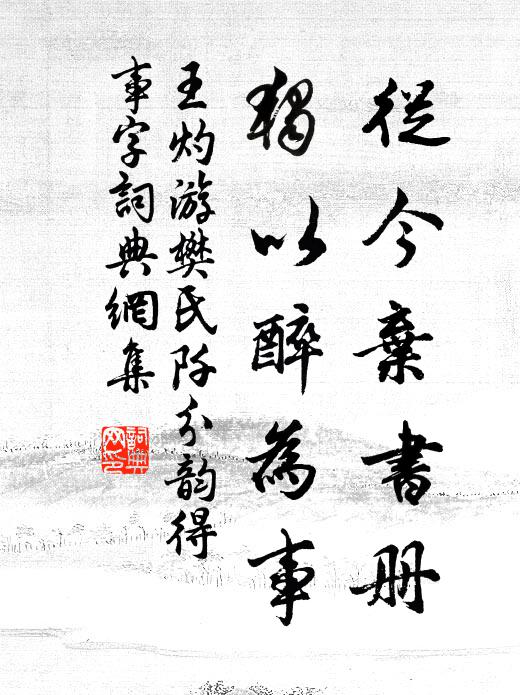 從今棄書冊
獨以醉為事
王灼游樊氏阡分韵得
事字詞典網集
詞典
网印